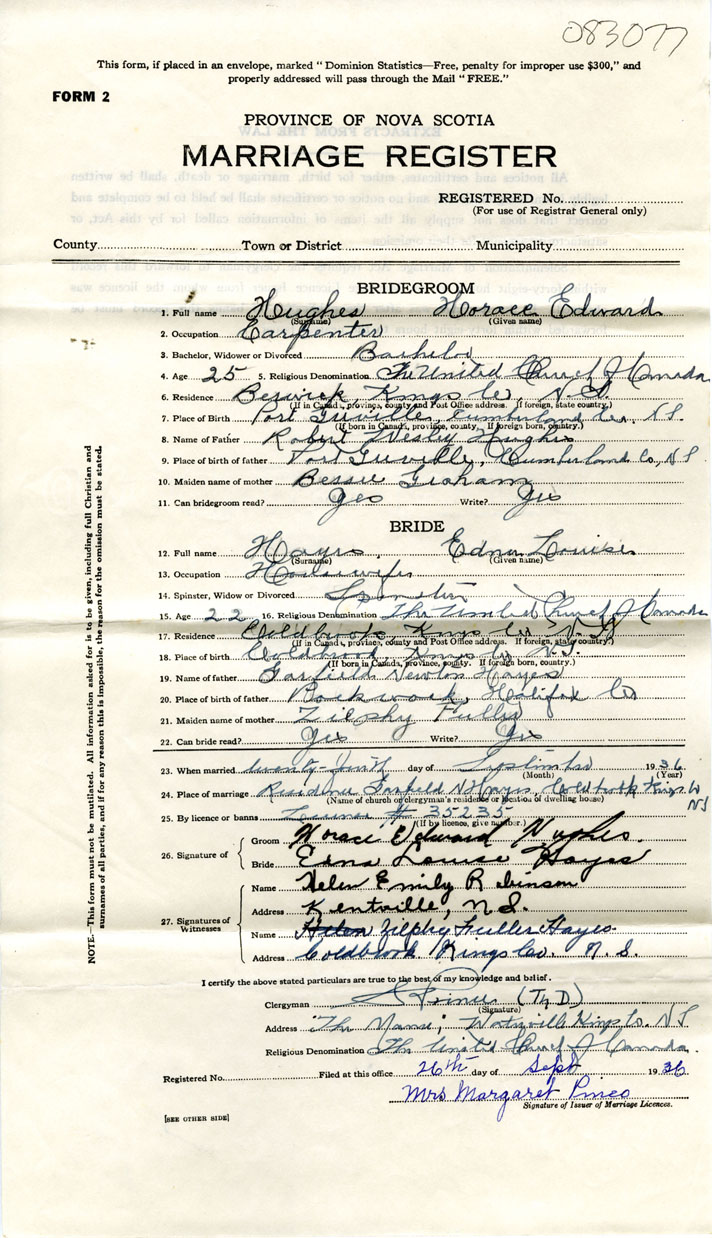 083077
This form, if placed in an envelope, marked "Dominion Statistics—Free, penalty for improper use $300," and
properly addressed will pass through the Mail "FREE."
FORM 2
PROVINCE OF NOVA SCOTIA
MARRIAGE REGISTER
REGISTERED No.
(For use of Registrar General only)
County Town or District Municipality
BRIDEGROOM
1. Full name Hughes Horace Edward
(Surname) (Given name)
2. Occupation Carpenter
3. Bachelor, Widower or Divorced Bachelor
4. Age 25 5. Religious Denomination The United Church of Canada
6. Residence Berwick, Kings Co, N.S.
(If in Canada, province, county and Post Office address. If foreign, state country.)
7. Place of Birth Port Greville, Cumberland Co., N.S.
(If born in Canada, province, county. If foreign born, country.)
8. Name of Father Robert Wesly Hughes
9. Place of birth of father Port Greville, Cumberland Co., N.S.
10. Maiden name of mother Bessie Graham
11. Can bridegroom read? Yes Write? Yes
BRIDE
12. Full name Hayes, Edna Louise
(Surname) (Given name)
13. Occupation Housewife
14. Spinster, Widow or Divorced Spinster
15. Age 22 16. Religious Denomination The United Church of Canada
17. Residence Coldbrook, Kings Co N.S.
(If in Canada, province, county and Post Office address. If foreign, state country.)
18. Place of birth Coldbrook, Kings Co N.S.
(If born in Canada, province, county. If foreign born, country.)
19. Name of father Garfield Newton Hayes
20. Place of birth of father Halifax Co
21. Maiden name of mother Zilphy Fuller
22. Can bride read? Yes Write? Yes
23. When married day of September 1936
(Month) (Year)
24. Place of marriage Residence Garfield N Hayes, Coldbrook Kings Co
NS
(Name of church or clergyman's residence or mention of dwelling house)
25. By licence or banns License # 35235
(If by licence, give number.)
26. Signature of Groom Horace Edward Hughes.
Bride Edna Louise Hayes
27. Signatures of Witnesses Name Helen Emily Robinson
Address Kentville, N.S.
Name Helen Zilphy Fuller Hayes.
Address Coldbrook Kings Co. N.S.
I certify the above stated particulars are true to the best of my knowledge and belief.
Clergyman Prince (Th.D.)
(Signature)
Address "The Manse," Waterville Kings Co. N.S
Religious Denomination The United Church of Canada.
Registered No. Filed at this office 26th day of Sept 1936
Mrs Margaret Pineo
Signature of Issuer of Marriage Licences.
[SEE OTHER SIDE]
NOTE.—This form must not be mutilated. All information asked for is to be given, including full Christian and
surnames of all parties, and if for any reason this is impossible, the reason for the omission must be stated.